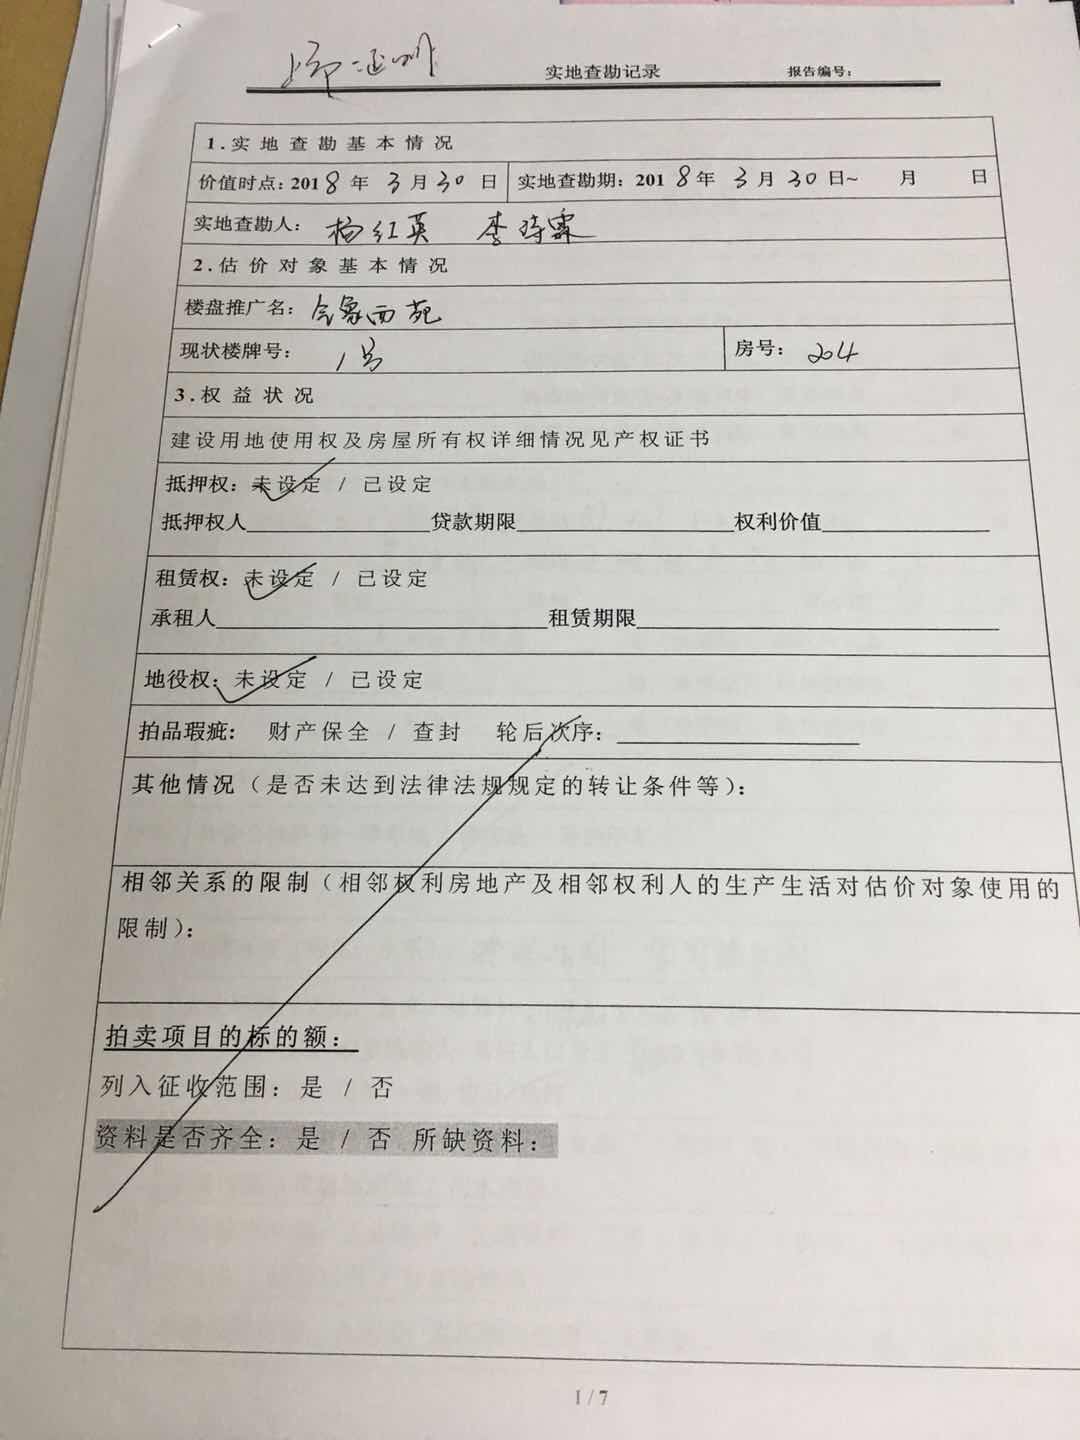 实地查勘记录 报告编号：
1.实地查勘基本情况
价值时点：2018年3月30日 实地查勘期：2018年3月30日~ 月 日
实地查勘人： 杨红英 李琦霖
2.估价对象基本情况
楼盘推广名： 象西苑
现状楼牌号： 1号 房号： 204
3.权益状况
建设用地使用权及房屋所有权详细情况见产权证书
抵押权：未设定 / 已设定
抵押权人 贷款期限 权利价值
租赁权：未设定 / 已设定
承租人 租赁期限
地役权：未设定 / 已设定
拍品瑕疵： 财产保全 / 查封 轮后次序：
其他情况（是否未达到法律法规规定的转让条件等）：
相邻关系的限制（相邻权利房地产及相邻权利人的生产生活对估价对象使用的
限制）：
拍卖项目的标的额：
列入征收范围：是 / 否
资料是否齐全：是 / 否 所缺资料：
1/7